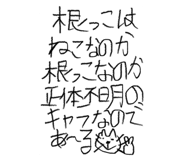 根っこは
ねこなのか
根っこなのか
正体不明の
キャラなので
あ〜る